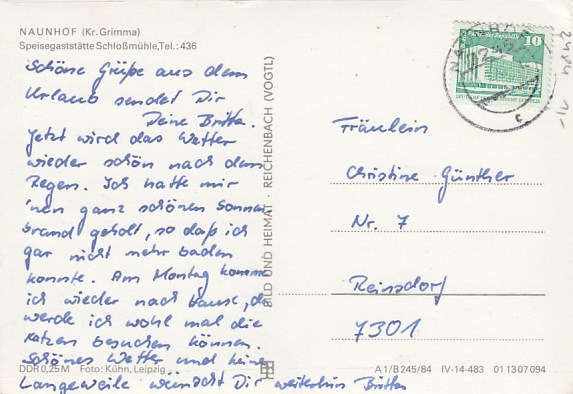 NAUNHOF (Kr. Grimma)
Speisegaststätte Schloßmühle, Tel.: 436
Schöne Grüße aus dem
Urlaub sendet Dir
Deine Britta.
Jetzt wird das Wetter
wieder schön nach dem
Regen. Ich hatte mir
'nen ganz schönen Sonnen
brand geholt, so daß ich
gar nicht mehr baden
konnte. Am Montag komme
ich wieder nach Hause, da
werde ich wohl mal die
Katzen besuchen können.
Schönes Wetter und keine
Langeweile wünscht Dir weiterhin Britta
DDR 0,25 M Foto: Kühn, Leipzig
BILD UND HEIMAT · REICHENBACH (VOGTL)
10
Fräulein
Christine Günther
Nr. 7
Reinsdorf
7301
A 1/B 245/84 IV-14-483 01 13 07 094